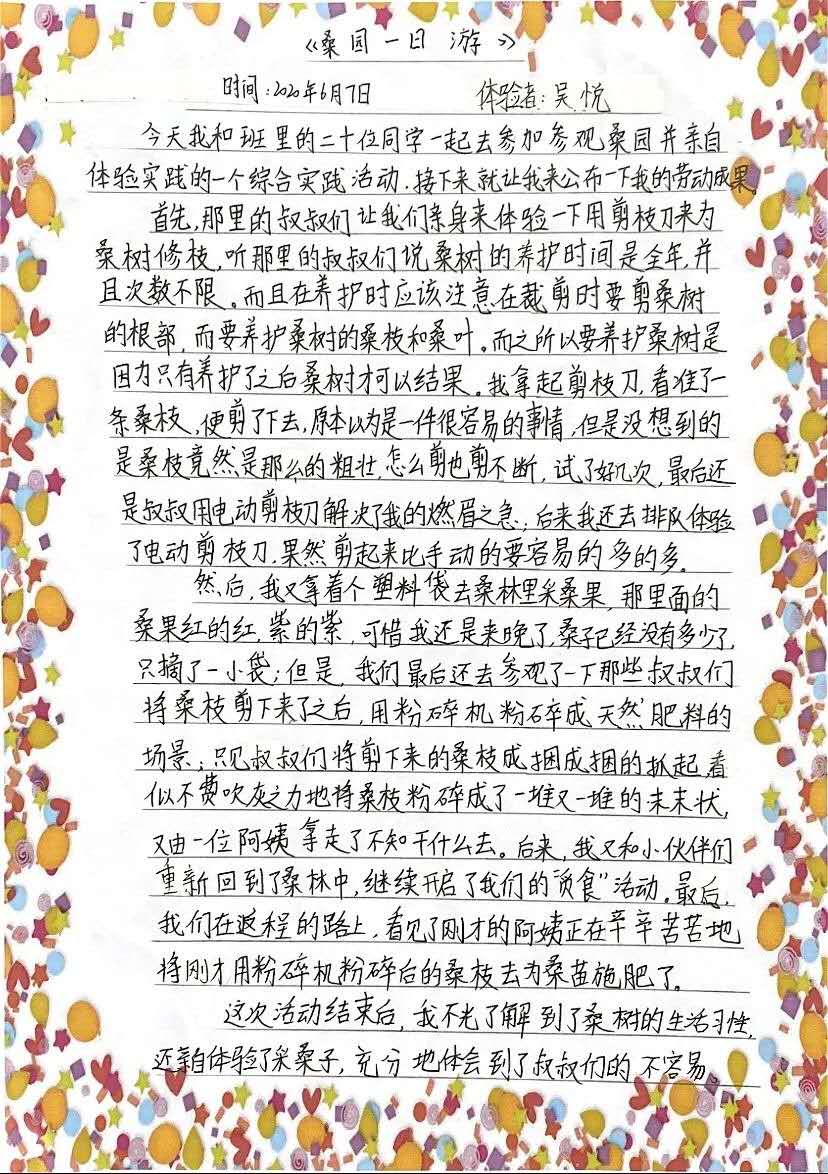 《桑园一日游》
时间:2020年6月7日 体验者:吴悦
今天我和班里的二十位同学一起去参加参观桑园并亲自
体验实践的一个综合实践活动.接下来就让我来公布一下我的劳动成果
首先,那里的叔叔们让我们亲身来体验一下用剪枝刀来为
桑树修枝,听那里的叔叔们说桑树的养护时间是全年,并
且次数不限。而且在养护时应该注意在裁剪时要剪桑树
的根部,而要养护桑树的桑枝和桑叶。而之所以要养护桑树是
因为只有养护了之后桑树才可以结果。我拿起剪枝刀,看准了一
条桑枝,便剪了下去,原本以为是一件很容易的事情,但是没想到的
是桑枝竟然是那么的粗壮,怎么剪也剪不断,试了好几次,最后还
是叔叔用电动剪枝刀解决了我的燃眉之急;后来我还去排队体验
了电动剪枝刀,果然剪起来比手动的要容易的多的多。
然后,我又拿着个塑料袋去桑林里采桑果,那里面的
桑果红的红,紫的紫,可惜我还是来晚了,桑子已经没有多少了,
只摘了一小袋;但是,我们最后还去参观了一下那些叔叔们
将桑枝剪下来了之后,用粉碎机粉碎成天然肥料的
场景;只见叔叔们将剪下来的桑枝成捆成捆的抓起,看
似不费吹灰之力地将桑枝粉碎成了一堆又一堆的末末状,
又由一位阿姨拿走了不知干什么去。后来,我又和小伙伴们
重新回到了桑林中,继续开启了我们的“贪食”活动。最后,
我们在返程的路上,看见了刚才的阿姨正在辛辛苦苦地
将刚才用粉碎机粉碎后的桑枝去为桑苗施肥了。
这次活动结束后,我不光了解到了桑树的生活习性,
还亲自体验了采桑子,充分地体会到了叔叔们的不容易。